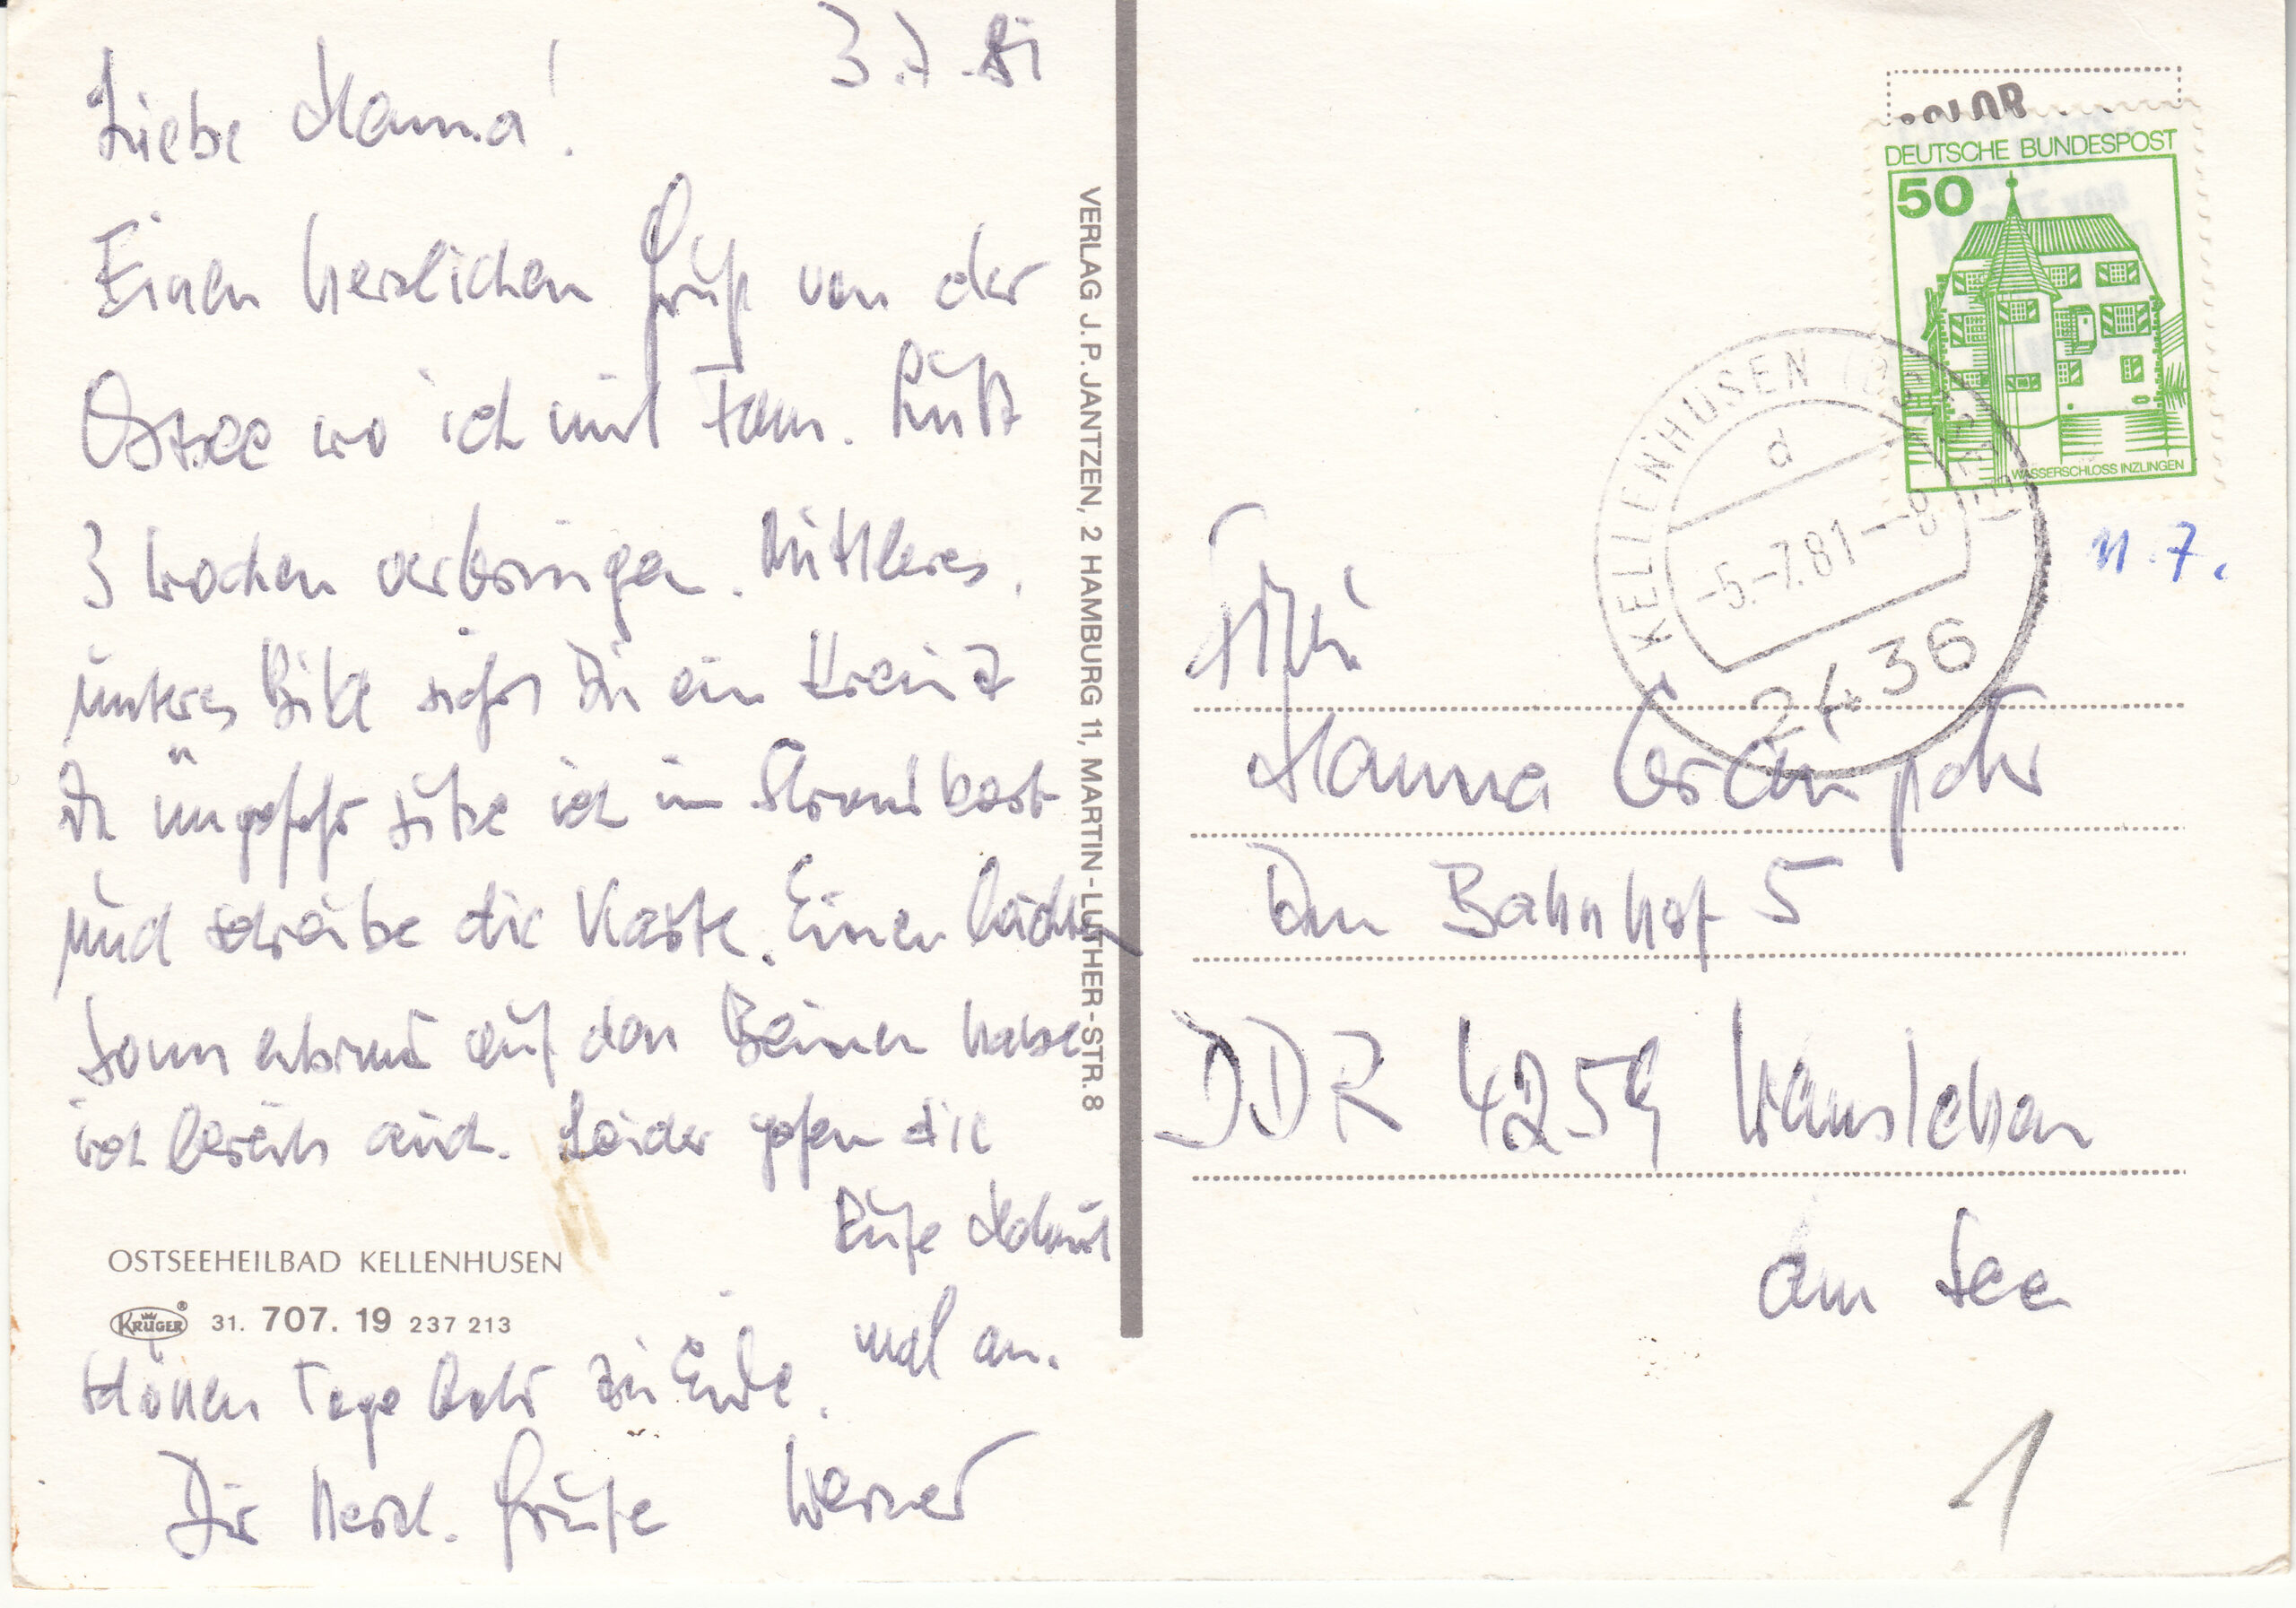 3.7.81
Liebe Hanna!
Einen herzlichen Gruß von der
Ostsee wo ich mit Fam.
3 Wochen verbringen. Mittleres,
unteres Bild siehst Du ein Kreuz
Da ungefähr sitze ich im Strandkorb
und schreibe die Karte. Einen leichten
Sonnenbrand auf den Beinen habe
ich bereits auch. Leider gehen die
schönen Tage bald zu Ende.
Rufe
mal an.
Dir Herzl. Grüße Werner
OSTSEEHEILBAD KELLENHUSEN
KRÜGER® 31. 707. 19 237 213
VERLAG J. P. JANTZEN, 2 HAMBURG 11, MARTIN-LUTHER-STR. 8
DEUTSCHE BUNDESPOST
50
WASSERSCHLOSS INZLINGEN
KELLENHUSEN (OSTSEE)
d
-5.-7.81--8
2436
11.7.
Frau
Hanna
Am Bahnhof 5
DDR 4259 Wansleben
am See
1